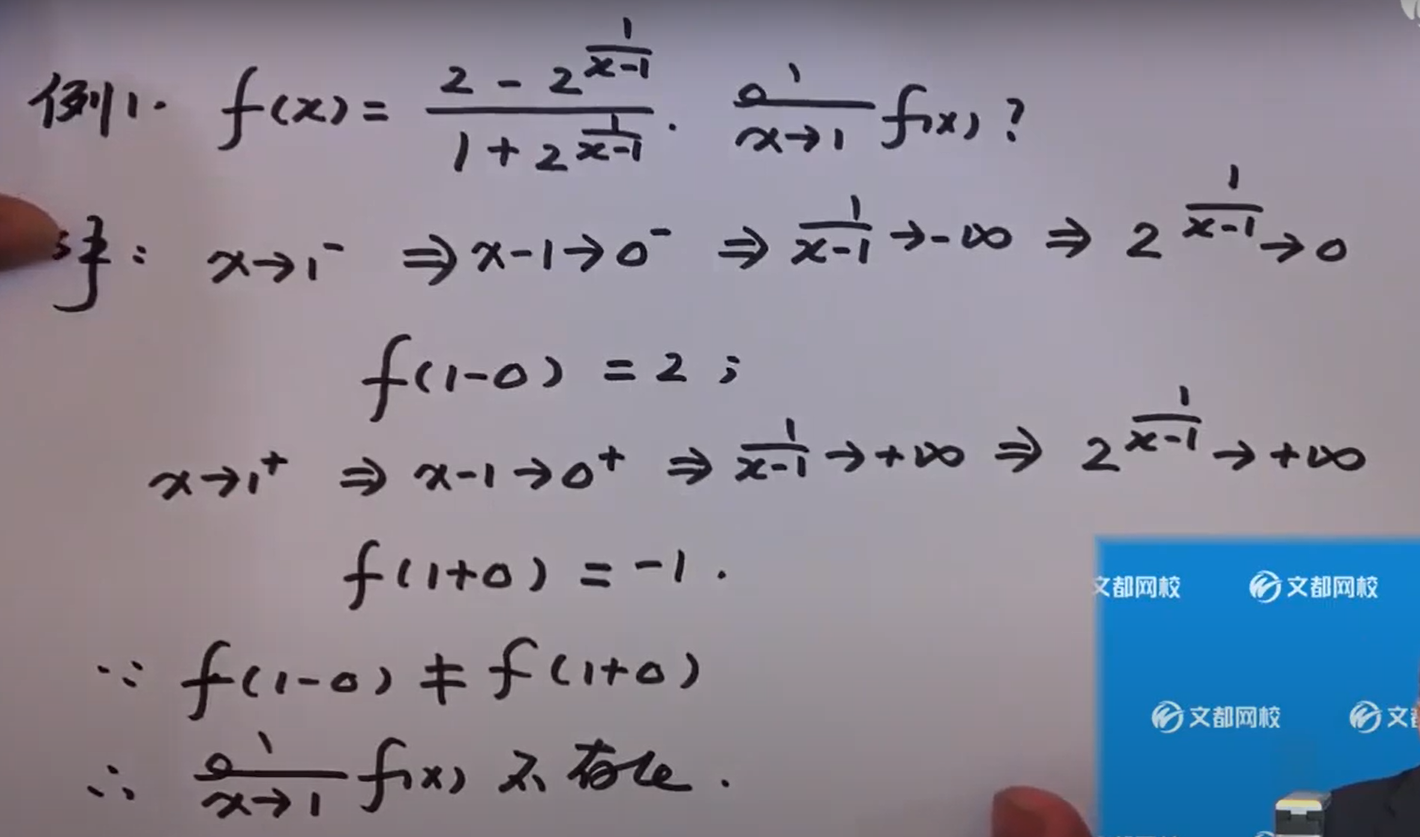 例1. f(x) = (2 - 2^(1/(x-1))) / (1 + 2^(1/(x-1))). lim x→1 f(x)?
解: x→1⁻ ⇒ x-1→0⁻ ⇒ 1/(x-1) → -∞ ⇒ 2^(1/(x-1)) → 0
f(1-0) = 2;
x→1⁺ ⇒ x-1→0⁺ ⇒ 1/(x-1) → +∞ ⇒ 2^(1/(x-1)) → +∞
f(1+0) = -1.
∵ f(1-0) ≠ f(1+0)
∴ lim x→1 f(x) 不存在.
文都网校 文都网校
文都网校 文